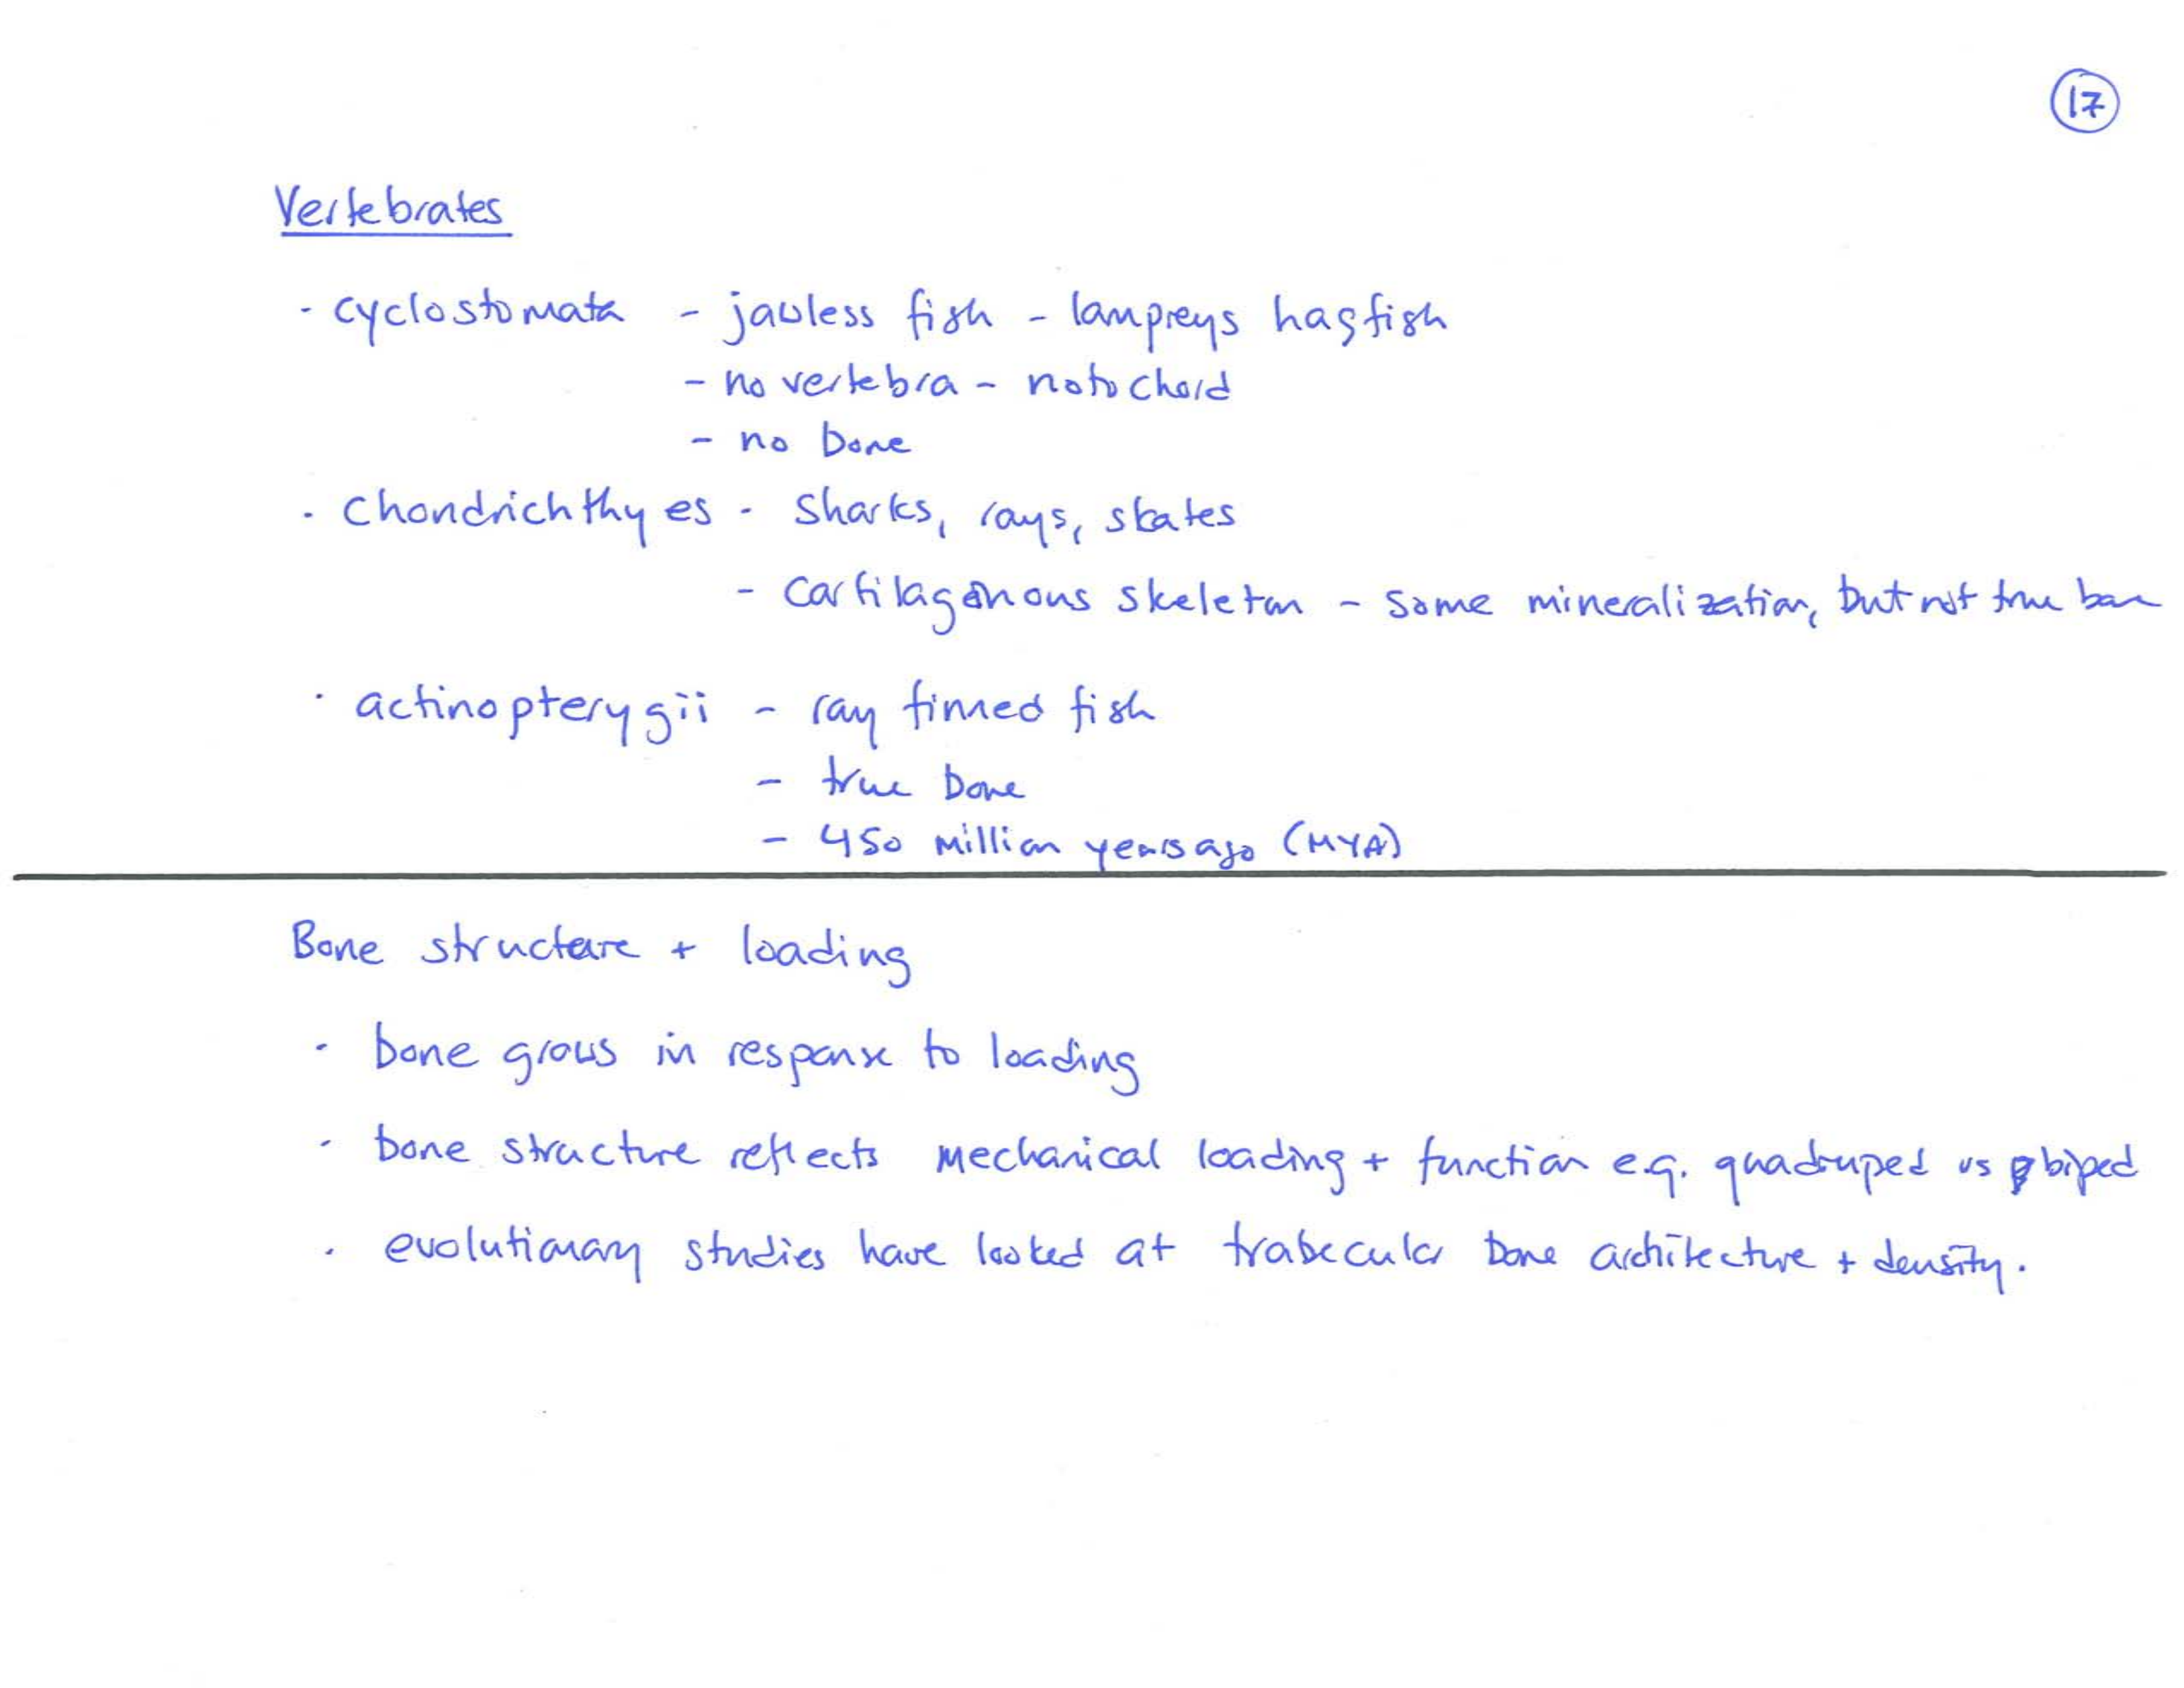 17
Vertebrates
· cyclostomata - jawless fish - lampreys hagfish
- no vertebra - notochord
- no bone
· Chondrichthyes - Sharks, rays, skates
- Cartilagenous skeleton - some mineralization, but not true bone
· actinopterygii - ray finned fish
- true bone
- 450 million years ago (MYA)
Bone structure + loading
· bone grows in response to loading
· bone structure reflects mechanical loading + function e.g. quadruped vs biped
· evolutionary studies have looked at trabecular bone architecture + density.